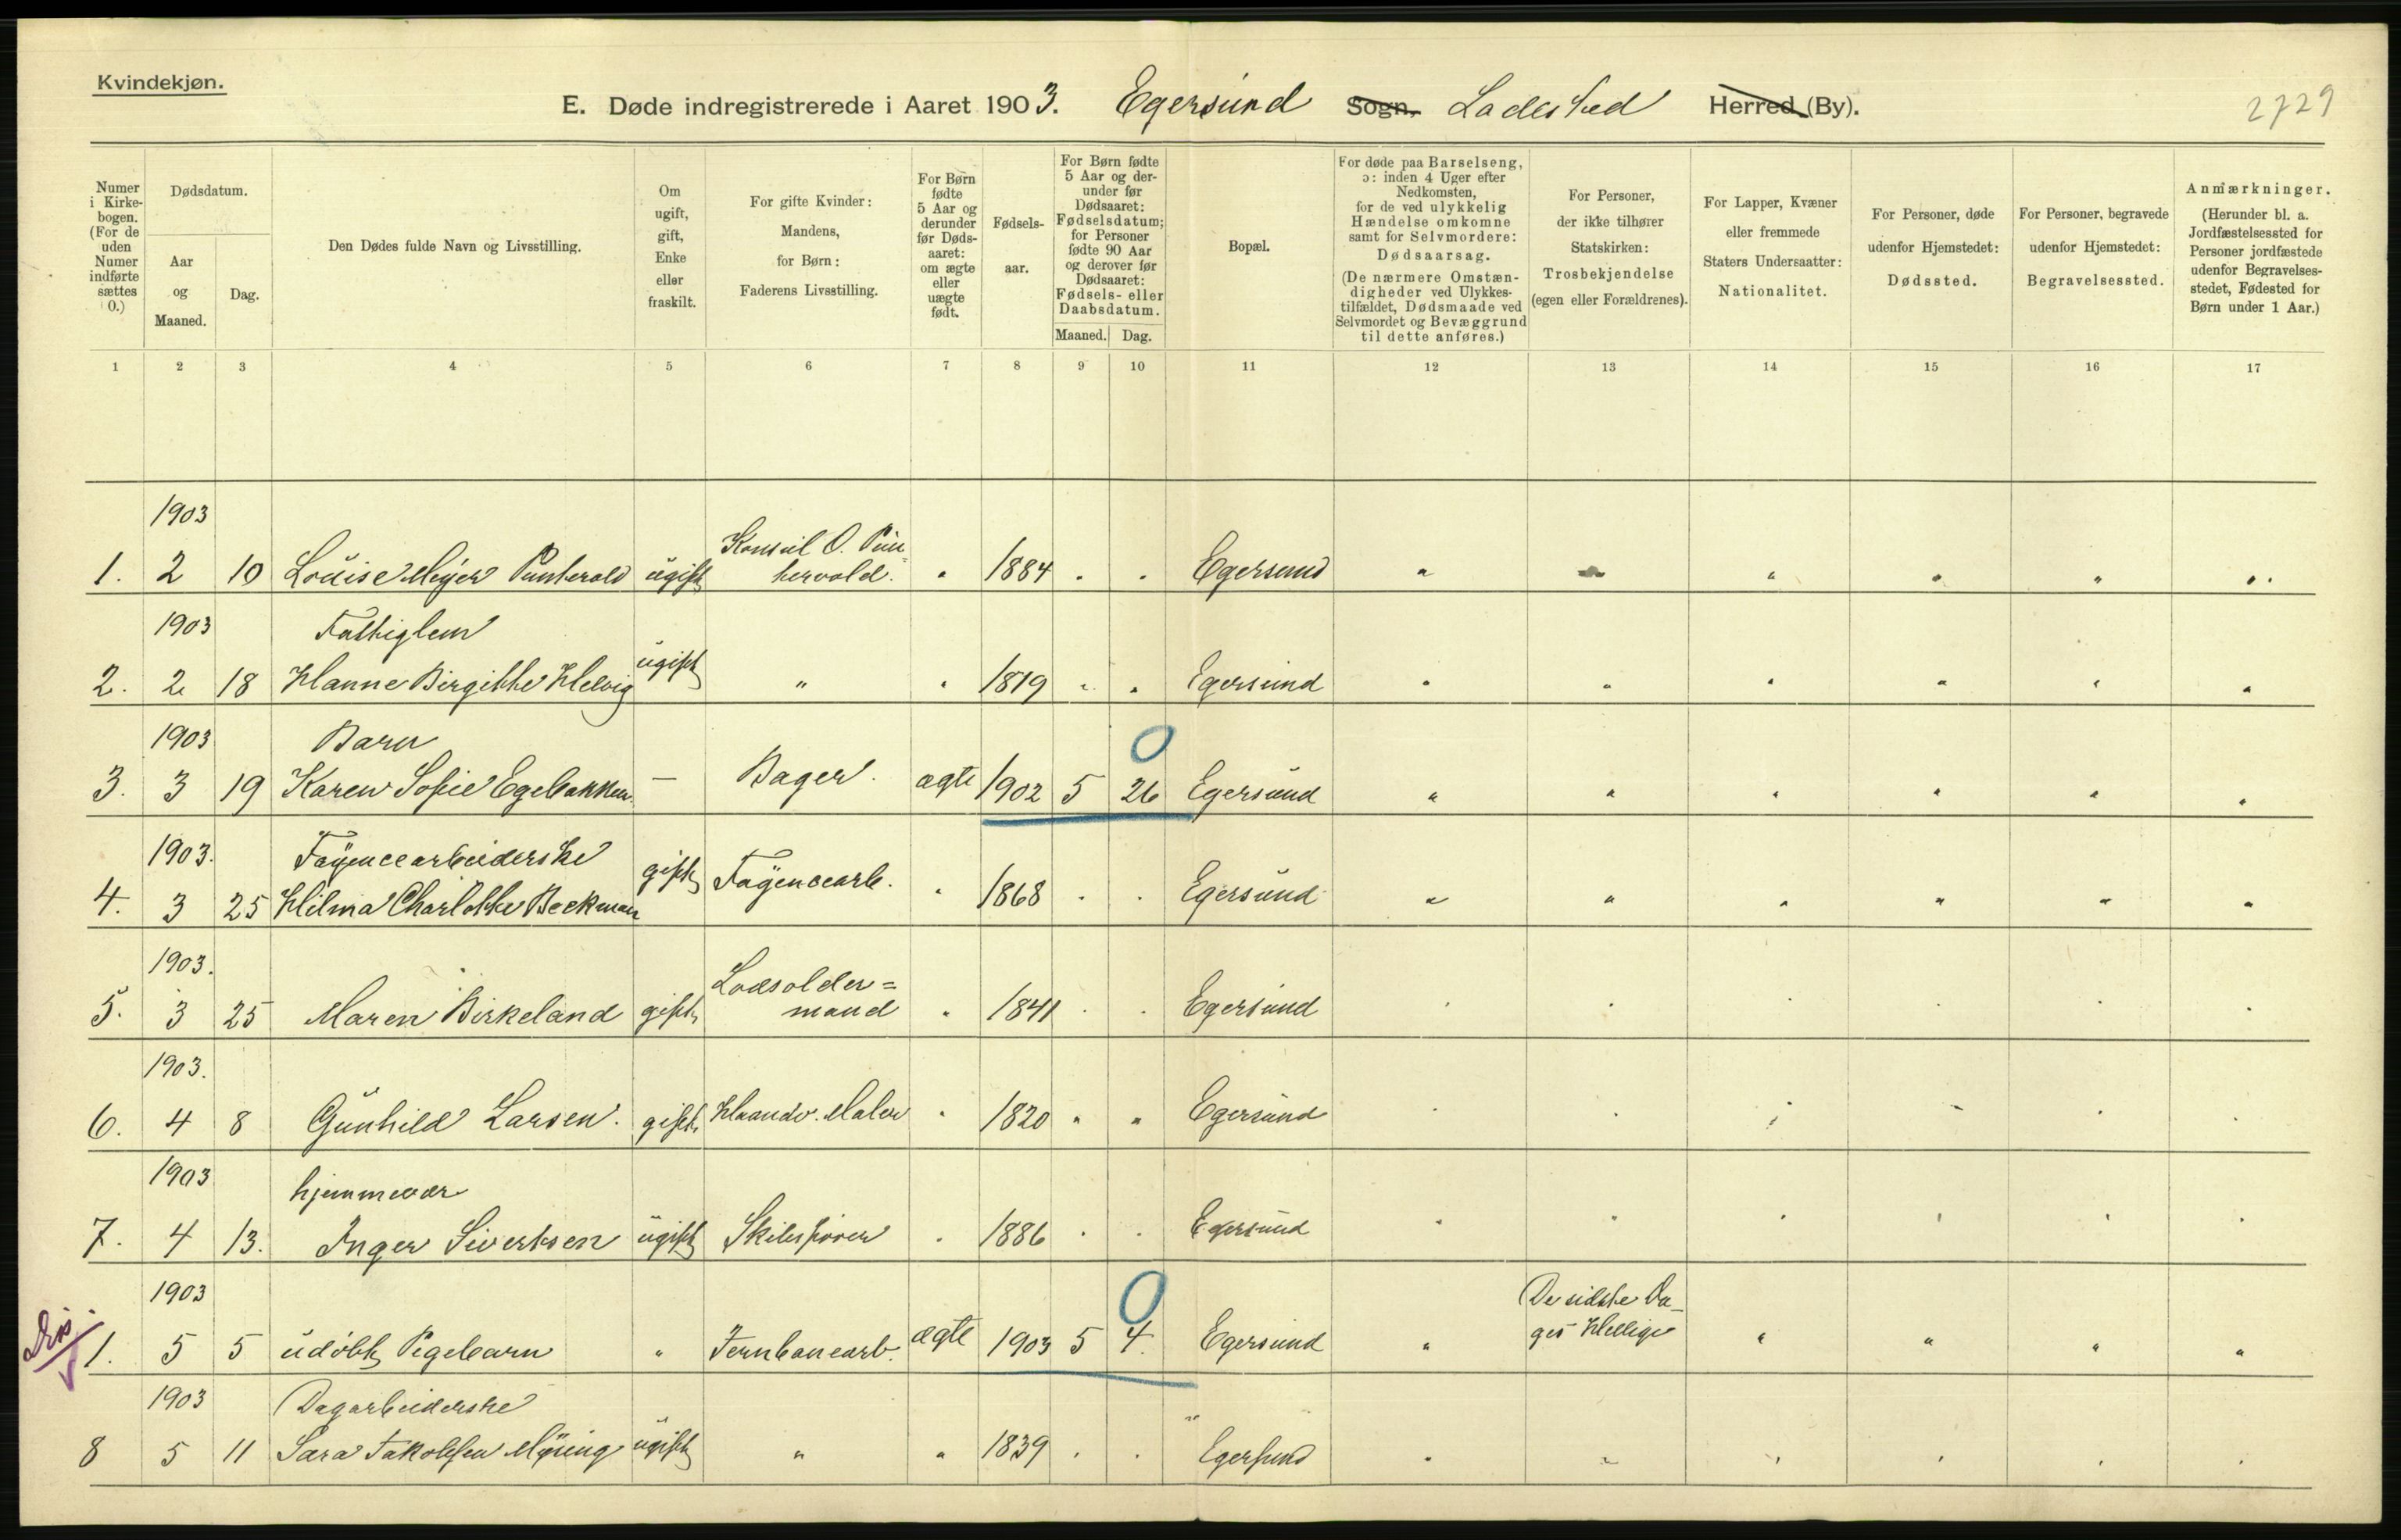 Kvindekjøn.
E. Døde indregistrerede i Aaret 1903. Egersund Sogn. Ladested Herred (By).
2729
Numer i Kirkebogen. (For de uden Numer indførte sættes 0.)
Dødsdatum.
Aar og Maaned.
Dag.
Den Dødes fulde Navn og Livsstilling.
Om ugift, gift, Enke eller fraskilt.
For gifte Kvinder: Mandens, for Børn: Faderens Livsstilling.
For Børn fødte 5 Aar og derunder før Dødsaaret: om ægte eller uægte født.
Fødselsaar.
For Børn fødte 5 Aar og derunder før Dødsaaret: Fødselsdatum; for Personer fødte 90 Aar og derover før Dødsaaret: Fødsels- eller Daabsdatum.
Maaned. Dag.
Bopæl.
For døde paa Barselseng, ɔ: inden 4 Uger efter Nedkomsten, for de ved ulykkelig Hændelse omkomne samt for Selvmordere: Dødsaarsag. (De nærmere Omstændigheder ved Ulykkestilfældet, Dødsmaade ved Selvmordet og Bevæggrund til dette anføres.)
For Personer, der ikke tilhører Statskirken: Trosbekjendelse (egen eller Forældrenes).
For Lapper, Kvæner eller fremmede Staters Undersaatter: Nationalitet.
For Personer, døde udenfor Hjemstedet: Dødssted.
For Personer, begravede udenfor Hjemstedet: Begravelsessted.
Anmærkninger. (Herunder bl. a. Jordfæstelsessted for Personer jordfæstede udenfor Begravelsesstedet, Fødested for Børn under 1 Aar.)
1 2 3 4 5 6 7 8 9 10 11 12 13 14 15 16 17
1903 Konsul O. Pün=
1. 2 10 Louise Meyer Püntervold ugift tervold. " 1884 " " Egersund " " " " " "
1903 Fattiglem
2. 2 18 Hanne Birgitte Helvig ugift " " 1819 " " Egersund " " " " " "
1903 Barn 0
3. 3 19 Karen Sofie Egebakken. — Bager. ægte 1902 5 26 Egersund " " " " " "
1903. Fayencearbeiderske
4. 3 25 Hilma Charlotte Beckman gift Fayencearb. " 1868 " " Egersund " " " " " "
1903. Lodsolder=
5. 3 25 Maren Birkeland gift mand " 1841 " " Egersund " " " " " "
1903.
6. 4 8 Gunhild Larsen. gift. Haandv. Maler " 1820 " " Egersund " " " " " "
1903 hjemmevær
7. 4 13. Inger Sivertsen ugift Skibsfører " 1886 " " Egersund " " " " " "
1903 0 De sidste Da-
1. 5 5 udøbt Pigebarn " Jernbanearb. ægte 1903 5 4. Egersund " ges Hellige " " " "
1903 Dagarbeiderske
8 5 11 Sara Jakobsen ugift " " 1839 " " Egersund " " " " " "